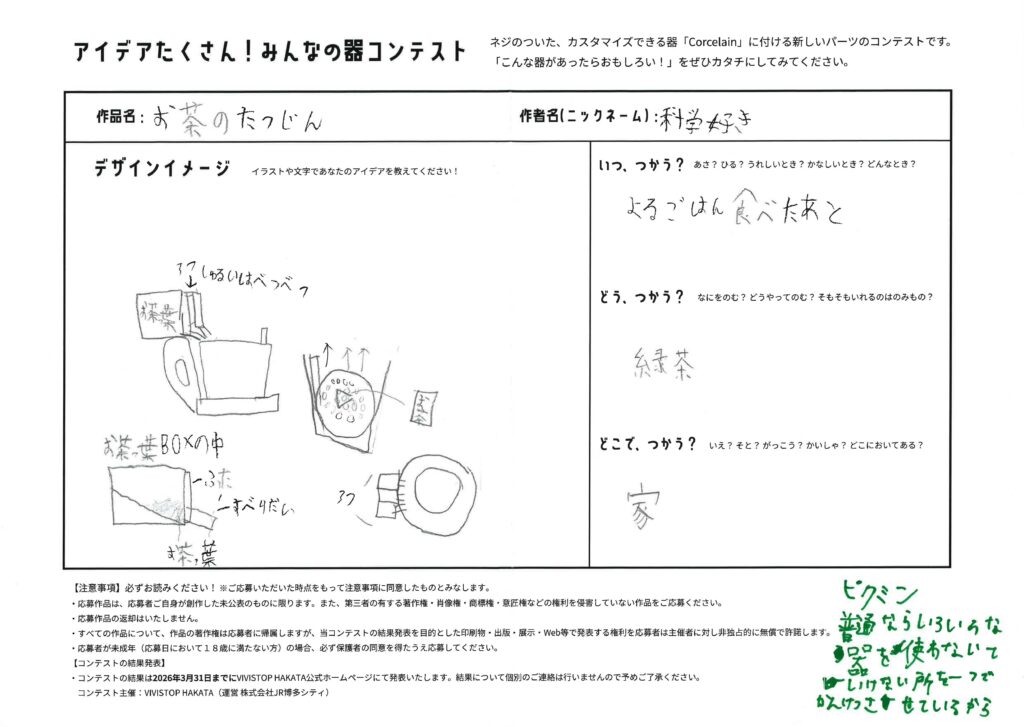 アイデアたくさん！みんなの器コンテスト
ネジのついた、カスタマイズできる器「Corcelain」に付ける新しいパーツのコンテストです。
「こんな器があったらおもしろい！」をぜひカタチにしてみてください。
作品名：お茶のたつじん
作者名(ニックネーム)：科学好き
デザインイメージ イラストや文字であなたのアイデアを教えてください！
3つ しゅるいはべつべつ
お茶葉
お茶
お茶っ葉BOXの中
ふた
すべりだい
お茶っ葉
3つ
いつ、つかう？ あさ？ひる？うれしいとき？かなしいとき？どんなとき？
よるごはん食べたあと
どう、つかう？ なにをのむ？どうやってのむ？そもそもいれるのはのみもの？
緑茶
どこで、つかう？ いえ？そと？がっこう？かいしゃ？どこにおいてある？
家
【注意事項】必ずお読みください！ ※ご応募いただいた時点をもって注意事項に同意したものとみなします。
・応募作品は、応募者ご自身が創作した未公表のものに限ります。また、第三者の有する著作権・肖像権・商標権・意匠権などの権利を侵害していない作品をご応募ください。
・応募作品の返却はいたしません。
・すべての作品について、作品の著作権は応募者に帰属しますが、当コンテストの結果発表を目的とした印刷物・出版・展示・Web等で発表する権利を応募者は主催者に対し非独占的に無償で許諾します。
・応募者が未成年（応募日において１８歳に満たない方）の場合、必ず保護者の同意を得たうえ応募してください。
【コンテストの結果発表】
・コンテストの結果は2026年3月31日までにVIVISTOP HAKATA公式ホームページにて発表いたします。結果について個別のご連絡は行いませんので予めご了承ください。
コンテスト主催：VIVISTOP HAKATA（運営 株式会社JR博多シティ）
ピクミン
普通ならいろいのな
器を使わないて
いけない所を一つで
かんけつさせているから